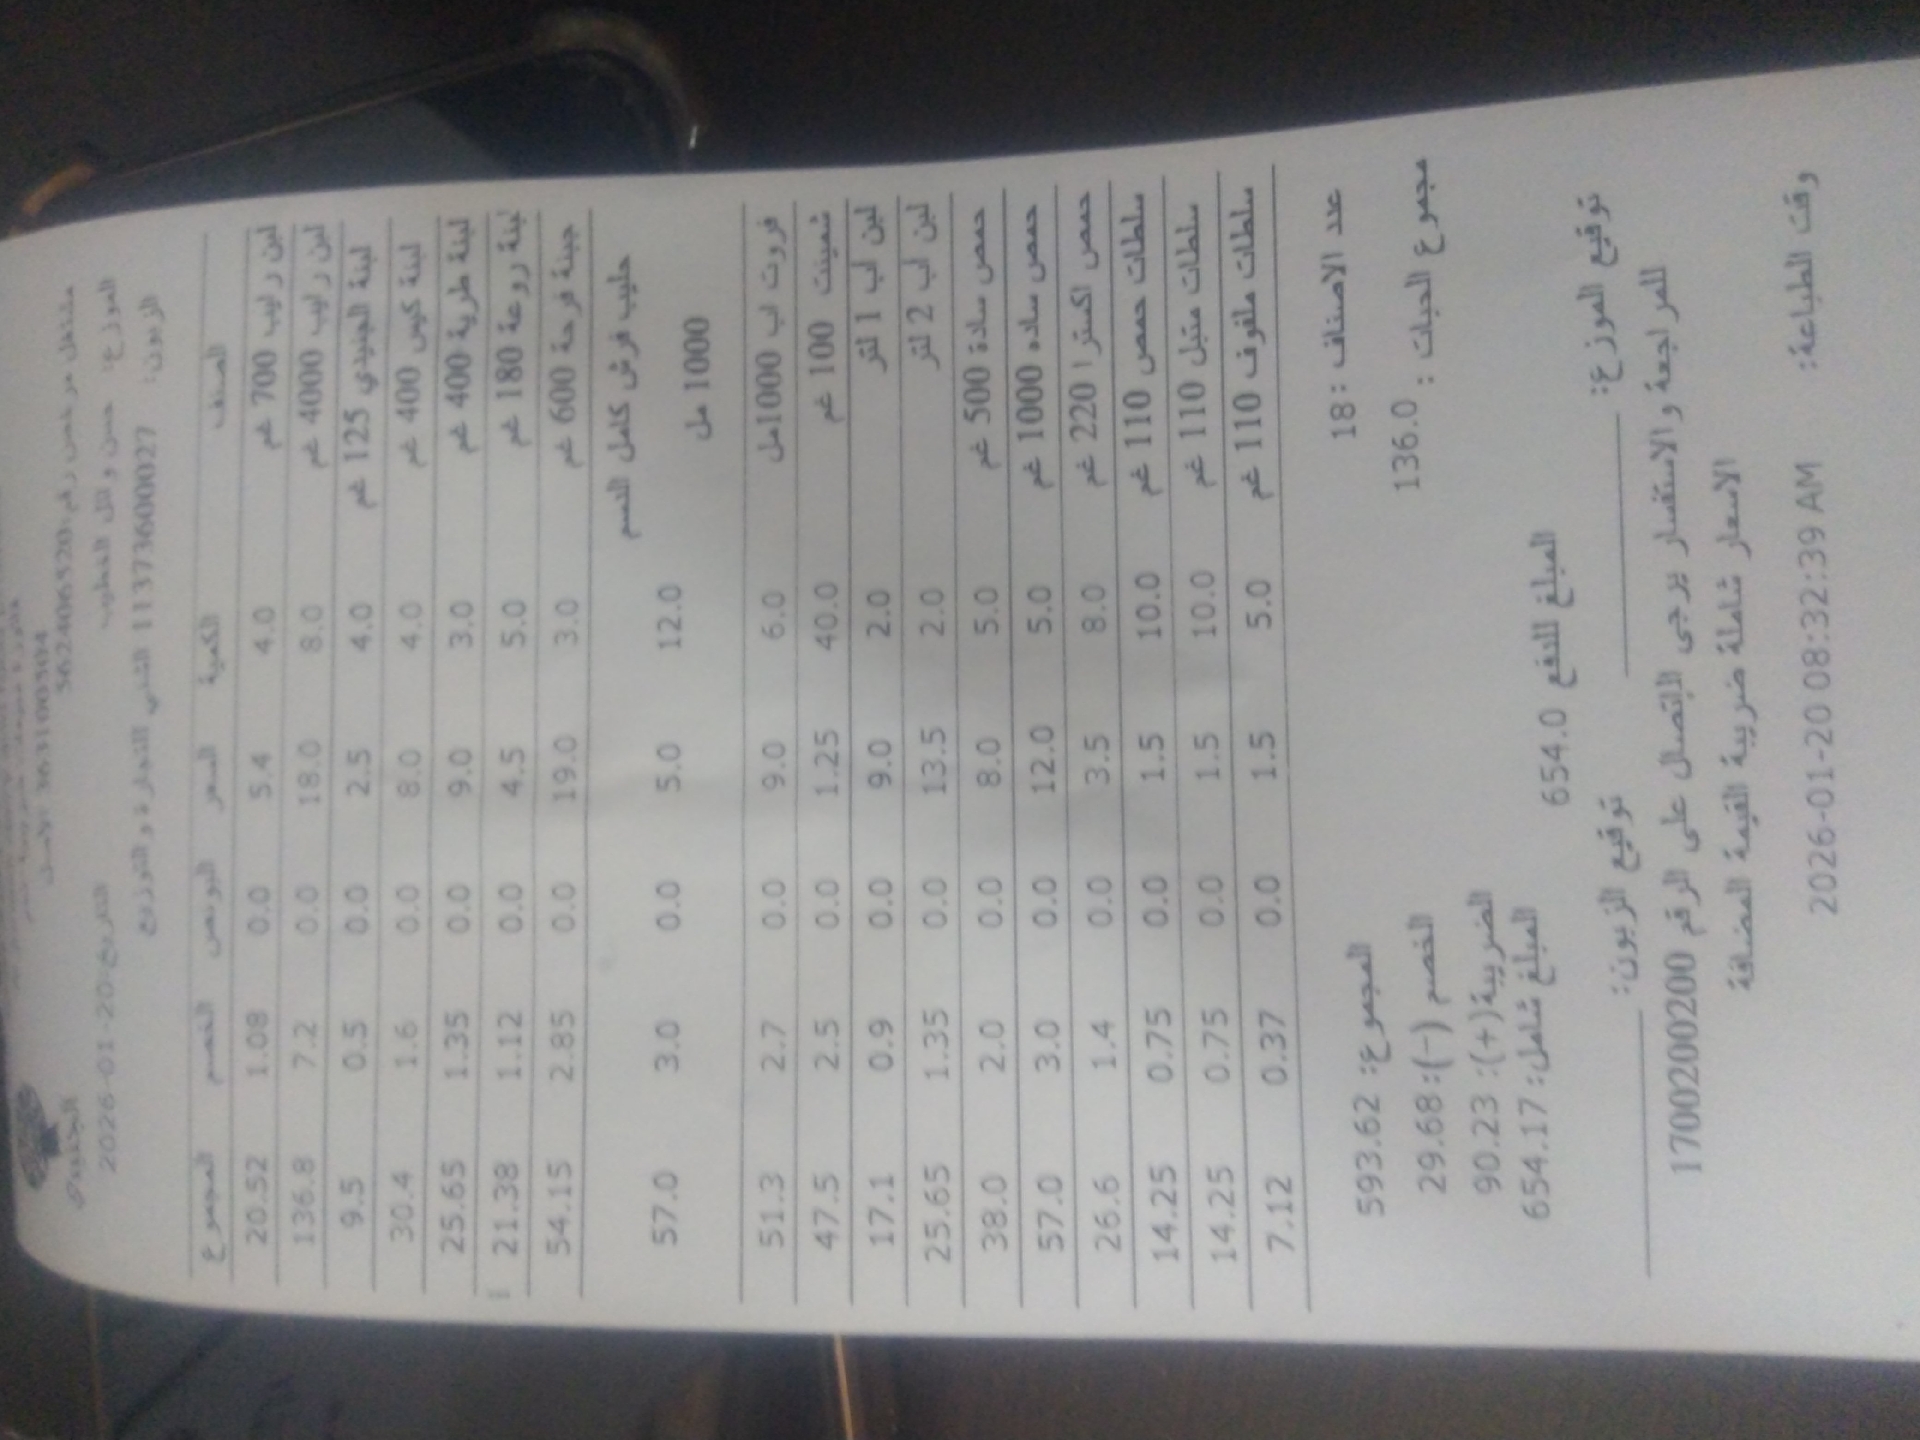 الجنيدي
مشتغل مرخص رقم: 562406520
التاريخ: 2026-01-20 الموزع: حسن وائل
الزبون: 1137360000027 التجارة والتوزيع
الصنف الكمية السعر البونص الخصم المجموع
لبن رايب 700 غم 4.0 5.4 0.0 1.08 20.52
لبن رايب 4000 غم 8.0 18.0 0.0 7.2 136.8
لبنة الجنيدي 125 غم 4.0 2.5 0.0 0.5 9.5
لبنة كيس 400 غم 4.0 8.0 0.0 1.6 30.4
لبنة طرية 400 غم 3.0 9.0 0.0 1.35 25.65
لبنة روعة 180 غم 5.0 4.5 0.0 1.12 21.38
جبنة فرحة 600 غم 3.0 19.0 0.0 2.85 54.15
حليب فرش كامل الدسم
1000 مل 12.0 5.0 0.0 3.0 57.0
فروت اب 1000مل 6.0 9.0 0.0 2.7 51.3
شمينت 100 غم 40.0 1.25 0.0 2.5 47.5
لبن اب 1 لتر 2.0 9.0 0.0 0.9 17.1
لبن اب 2 لتر 2.0 13.5 0.0 1.35 25.65
حمص سادة 500 غم 5.0 8.0 0.0 2.0 38.0
حمص ساده 1000 غم 5.0 12.0 0.0 3.0 57.0
حمص اكسترا 220 غم 8.0 3.5 0.0 1.4 26.6
سلطات حمص 110 غم 10.0 1.5 0.0 0.75 14.25
سلطات متبل 110 غم 10.0 1.5 0.0 0.75 14.25
سلطات ملفوف 110 غم 5.0 1.5 0.0 0.37 7.12
عدد الاصناف : 18 المجموع: 593.62
مجموع الحبات : 136.0 الخصم (-): 29.68
الضريبة(+): 90.23
المبلغ شامل: 654.17
المبلغ للدفع 654.0
توقيع الموزع: توقيع الزبون:
للمراجعة والاستفسار يرجى الاتصال على الرقم 1700200200
الاسعار شاملة ضريبة القيمة المضافة
وقت الطباعة: 2026-01-20 08:32:39 AM